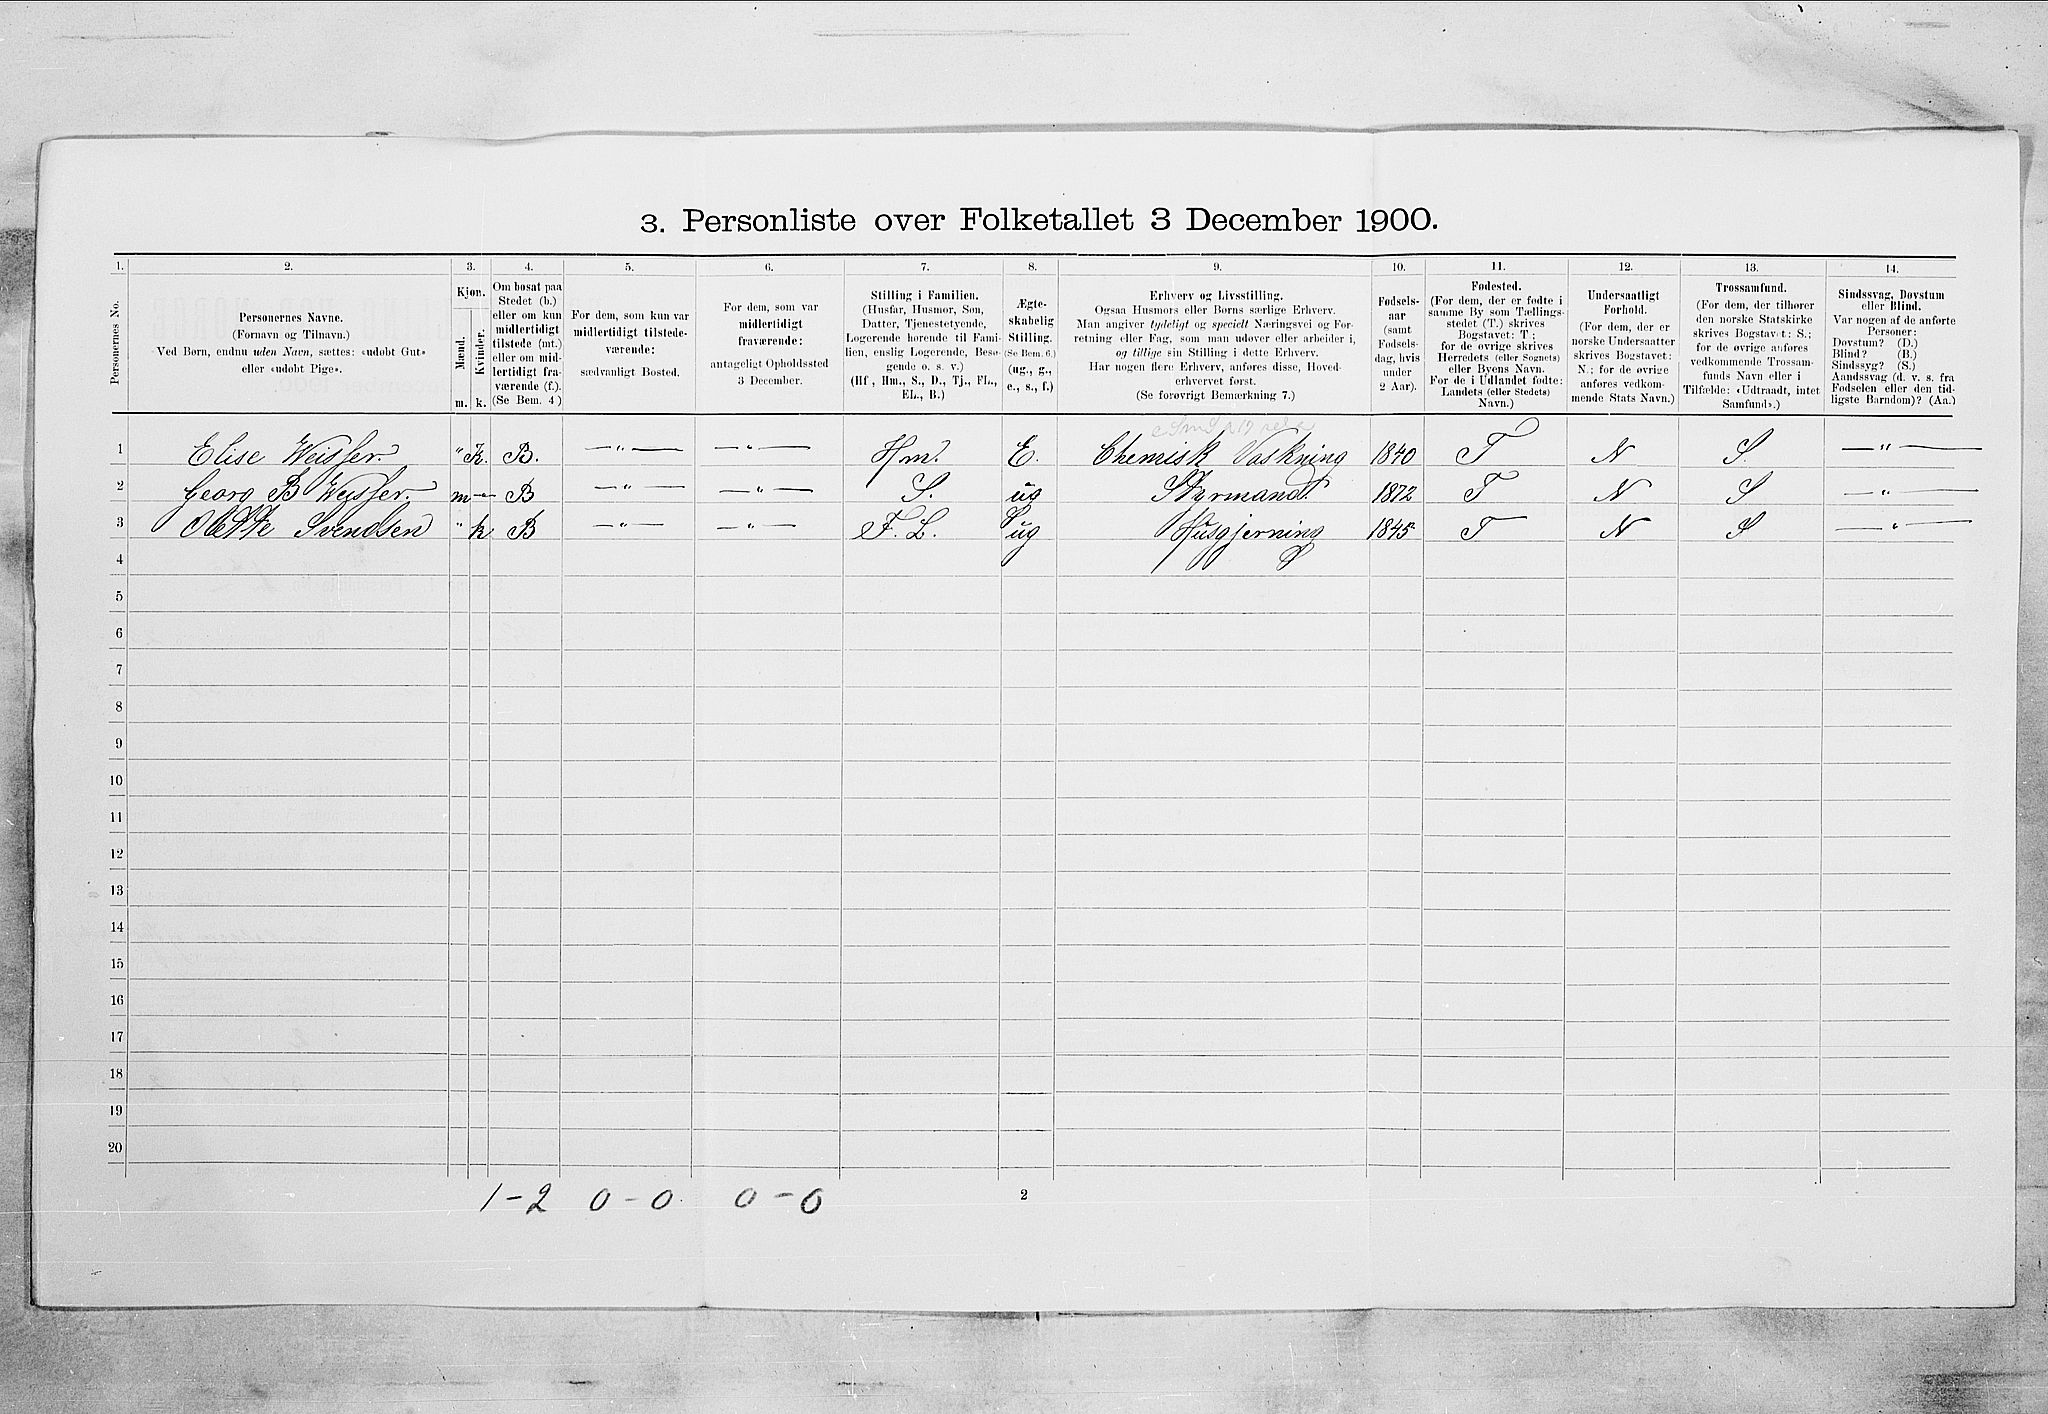 3. Personliste over Folketallet 3 December 1900.
1. 2. 3. 4. 5. 6. 7. 8. 9. 10. 11. 12. 13. 14.
Personernes No.
Personernes Navne.
(Fornavn og Tilnavn.)
Ved Børn, endnu uden Navn, sættes: «udøbt Gut»
eller «udøbt Pige».
Kjøn.
Mænd.
Kvinder.
m. k.
Om bosat paa
Stedet (b.)
eller om kun
midlertidigt
tilstede (mt.)
eller om mid-
lertidigt fra-
værende (f.).
(Se Bem. 4)
For dem, som kun var
midlertidigt tilstede-
værende:
sædvanligt Bosted.
For dem, som var
midlertidigt
fraværende:
antageligt Opholdssted
3 December.
Stilling i Familien.
(Husfar, Husmor, Søn,
Datter, Tjenestetyende,
Logerende hørende til Fami-
lien, enslig Logerende, Besø-
gende o. s. v.)
(Hf., Hm., S., D., Tj., FL.,
EL., B.)
Ægte-
skabelig
Stilling.
(Se Bem. 6.)
(ug., g.,
e., s., f.)
Erhverv og Livsstilling.
Ogsaa Husmors eller Børns særlige Erhverv.
Man angiver tydeligt og specielt Næringsvei og For-
retning eller Fag, som man udøver eller arbeider i,
og tillige sin Stilling i dette Erhverv.
Har nogen flere Erhverv, anføres disse, Hoved-
erhvervet først.
(Se forøvrigt Bemærkning 7.)
Fødsels-
aar
(samt
Fødsels-
dag, hvis
under
2 Aar).
Fødested.
(For dem, der er fødte i
samme By som Tællings-
stedet (T.) skrives
Bogstavet: T;
for de øvrige skrives
Herredets (eller Sognets)
eller Byens Navn.
For de i Udlandet fødte:
Landets (eller Stedets)
Navn.)
Undersaatligt
Forhold.
(For dem, der er
norske Undersaatter
skrives Bogstavet:
N.; for de øvrige
anføres vedkom-
mende Stats Navn.)
Trossamfund.
(For dem, der tilhører
den norske Statskirke
skrives Bogstavet: S.;
for de øvrige anføres
vedkommende Trossam-
funds Navn eller i
Tilfælde: «Udtraadt, intet
Samfund».)
Sindssvag, Døvstum
eller Blind.
Var nogen af de anførte
Personer:
Døvstum? (D.)
Blind? (B.)
Sindssyg? (S.)
Aandssvag (d. v. s. fra
Fødselen eller den tid-
ligste Barndom)? (Aa.)
1 Elise Weisser. " K. B. — " — — " — Hm. E. Chemisk Vaskning 1840 T N S. — " —
2 Georg B Weisser. m — B — " — — " — S. ug Styrmand. 1872 T N S — " —
3 Mette Svendsen " k B — " — — " — F. L. ug Husgjerning 1845 T N S — " —
4
5
6
7
8
9
10
11
12
13
14
15
16
17
18
19
20
1 - 2 0 - 0. 0 - 0
2